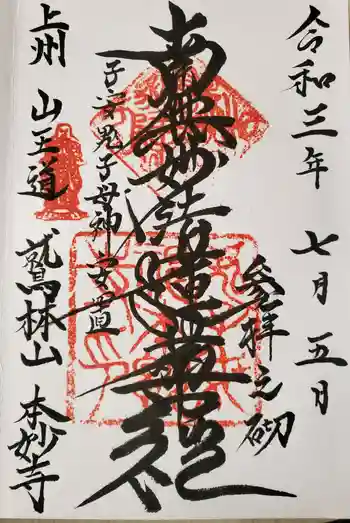 令和三年 七月 五日
参拝之砌
南無妙法蓮華経
子安鬼子母神安置
上州 山王道 鷲林山 本妙寺